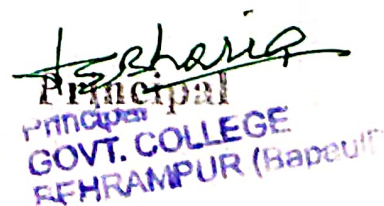 Principal
Principal
GOVT. COLLEGE
BEHRAMPUR (Bapauli